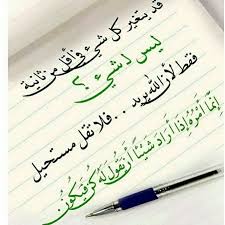 قد يتغير كل شيء في أقل من ثانية
ليس لشيء ؟
فقط لأن الله يريد .. فلا تقل مستحيل
إنما أمره إذا أراد شيئا أن يقول له كن فيكون